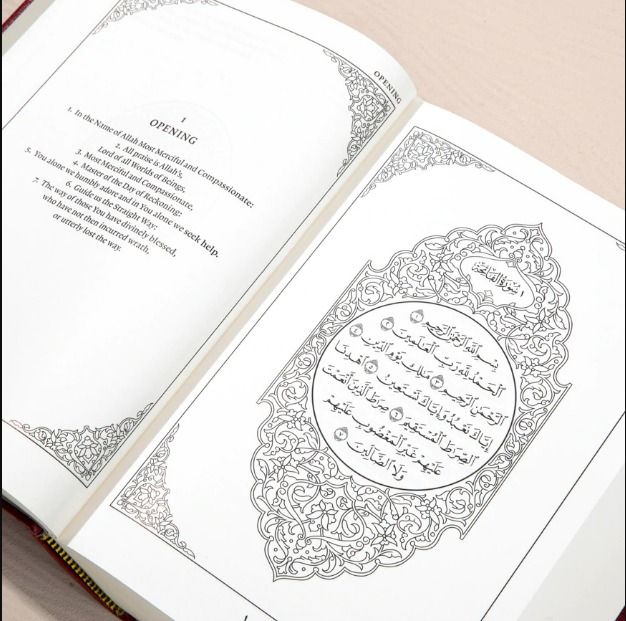 OPENING
1
OPENING
1. In the Name of Allah Most Merciful and Compassionate:
2. All praise is Allah's,
Lord of all Worlds of Beings,
3. Most Merciful and Compassionate,
4. Master of the Day of Reckoning:
5. You alone we humbly adore and in You alone we seek help.
6. Guide us the Straight Way:
7. The way of those You have divinely blessed,
who have not then incurred wrath,
or utterly lost the way.
١ سُورَةُ الفَاتِحَة
بِسْمِ ٱللَّهِ ٱلرَّحْمَٰنِ ٱلرَّحِيمِ ١
ٱلْحَمْدُ لِلَّهِ رَبِّ ٱلْعَٰلَمِينَ ٢
ٱلرَّحْمَٰنِ ٱلرَّحِيمِ ٣ مَٰلِكِ يَوْمِ ٱلدِّينِ ٤
إِيَّاكَ نَعْبُدُ وَإِيَّاكَ نَسْتَعِينُ ٥ ٱهْدِنَا
ٱلصِّرَٰطَ ٱلْمُسْتَقِيمَ ٦ صِرَٰطَ ٱلَّذِينَ أَنْعَمْتَ
عَلَيْهِمْ غَيْرِ ٱلْمَغْضُوبِ عَلَيْهِمْ
وَلَا ٱلضَّآلِّينَ ٧
1